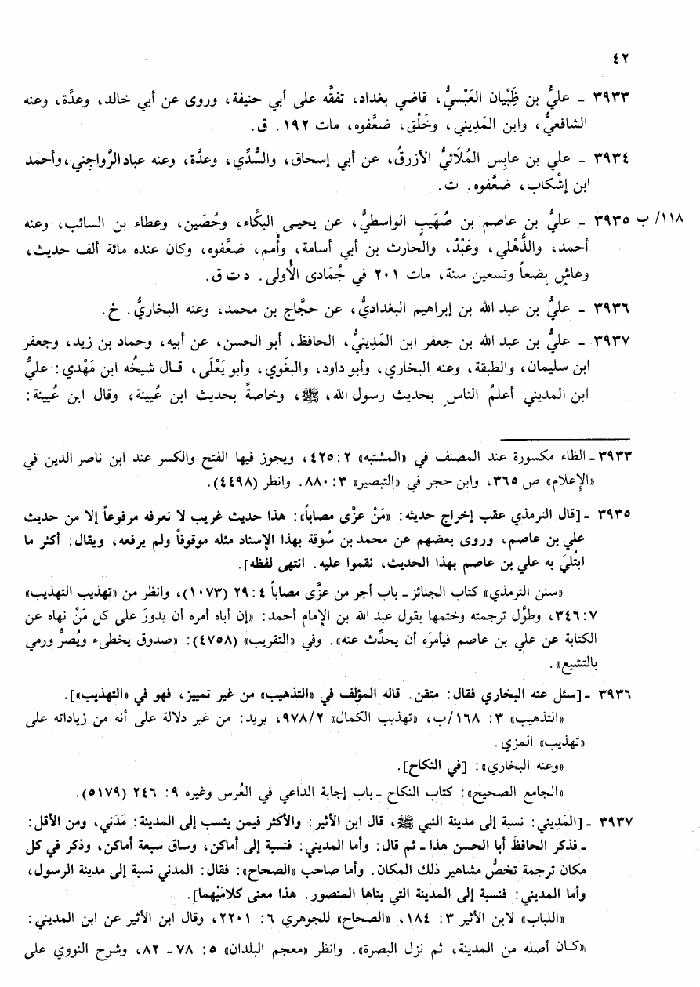 ٤٢
٣٩٣٣ - عليُّ بن ظَبْيان العَبْسيُّ، قاضي بغداد، تفقَّه على أبي حنيفة، وروى عن أبي خالد، وعدَّة، وعنه
الشافعيُّ، وابن المَديني، وخَلْق، ضعَّفوه، مات ١٩٢. ق.
٣٩٣٤ - علي بن عابِس المُلَائيُّ الأزرقُ، عن أبي إسحاق، والسُّدِّي، وعدَّة، وعنه عباد الرَّواجِني، وأحمد
ابن إشْكاب، ضعَّفوه. ت.
١١٨/ ب ٣٩٣٥ - عليُّ بن عاصم بن صُهَيب الواسطيُّ، عن يحيى البكَّاء، وحُصَين، وعطاء بن السائب، وعنه
أحمد، والذُّهْلي، وعَبْدٌ، والحارث بن أبي أسامة، وأُمم، ضعَّفوه، وكان عنده مائة ألف حديث،
وعاش بضعاً وتسعين سنة، مات ٢٠١ في جُمَادى الأولى. د ت ق.
٣٩٣٦ - عليُّ بن عبد الله بن إبراهيم البغداديُّ، عن حجَّاج بن محمد، وعنه البخاريُّ. خ.
٣٩٣٧ - عليُّ بن عبد الله بن جعفر ابن المَدِينيُّ، الحافظ، أبو الحسن، عن أبيه، وحماد بن زيد، وجعفر
ابن سليمان، والطبقة، وعنه البخاري، وأبو داود، والبغوي، وأبو يَعْلَى، قال شيخُه ابن مَهْدي: عليُّ
ابن المديني أعلمُ الناس بحديث رسول الله، ﷺ، وخاصةً بحديث ابن عُيينة، وقال ابن عُيينة:
٣٩٣٣ - الظاء مكسورة عند المصنف في «المشتبه» ٢: ٤٢٥، ويجوز فيها الفتح والكسر عند ابن ناصر الدين في
«الإعلام» ص ٣٦٥، وابن حجر في «التبصير» ٣: ٨٨٠. وانظر (٤٤٩٨).
٣٩٣٥ - [قال الترمذي عقب إخراج حديثه: «مَنْ عزَّى مصاباً»: هذا حديث غريب لا نعرفه مرفوعاً إلا من حديث
علي بن عاصم، وروى بعضهم عن محمد بن سُوقة بهذا الإسناد مثله موقوفاً ولم يرفعه، ويقال: أكثر ما
ابتُلِيَ به علي بن عاصم بهذا الحديث، نقموا عليه. انتهى لفظه].
«سنن الترمذي» كتاب الجنائز - باب أجر من عزَّى مصاباً ٤: ٢٩ (١٠٧٣)، وانظر من «تهذيب التهذيب»
٧: ٣٤٦، وطوَّل ترجمته وختمها بقول عبد الله بن الإمام أحمد: «إن أباه أمره أن يدورَ على كل مَنْ نهاه عن
الكتابة عن علي بن عاصم فيأمرَه أن يحدِّث عنه». وفي «التقريب» (٤٧٥٨): «صدوق يخطىء ويُصرُّ ورمي
بالتشيع».
٣٩٣٦ - [سئل عنه البخاري فقال: متقن. قاله المؤلف في «التذهيب» من غير تمييز، فهو في «التهذيب»].
«التذهيب» ٣: ١٦٨/ب، «تهذيب الكمال» ٩٧٨/٢، يريد: من غير دلالة على أنه من زياداته على
«تهذيب» المزي.
«وعنه البخاري»: [في النكاح].
«الجامع الصحيح»: كتاب النكاح - باب إجابة الداعي في العُرس وغيره ٩: ٢٤٦ (٥١٧٩).
٣٩٣٧ - [المَديني: نسبة إلى مدينة النبي ﷺ، قال ابن الأثير: والأكثر فيمن ينسب إلى المدينة: مَدَني، ومن الأقل:
- فذكر الحافظَ أبا الحسن هذا - ثم قال: وأما المديني: فنسبة إلى أماكن، وساق سبعة أماكن، وذكر في كل
مكان ترجمة تخصُّ مشاهير ذلك المكان. وأما صاحب «الصحاح»: فقال: المدني نسبة إلى مدينة الرسول،
وأما المديني: فنسبة إلى المدينة التي بناها المنصور. هذا معنى كلاميْهما].
«اللباب» لابن الأثير ٣: ١٨٤، «الصحاح» للجوهري ٦: ٢٢٠١، وقال ابن الأثير عن ابن المديني:
«كان أصله من المدينة، ثم نزل البصرة». وانظر «معجم البلدان» ٥: ٧٨ - ٨٢، وشرح النووي على